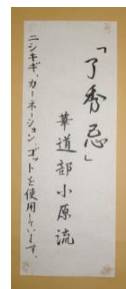 「了秀忌」
華道部小原流
ニシキギ、カーネーション、ゴットを使用しています。